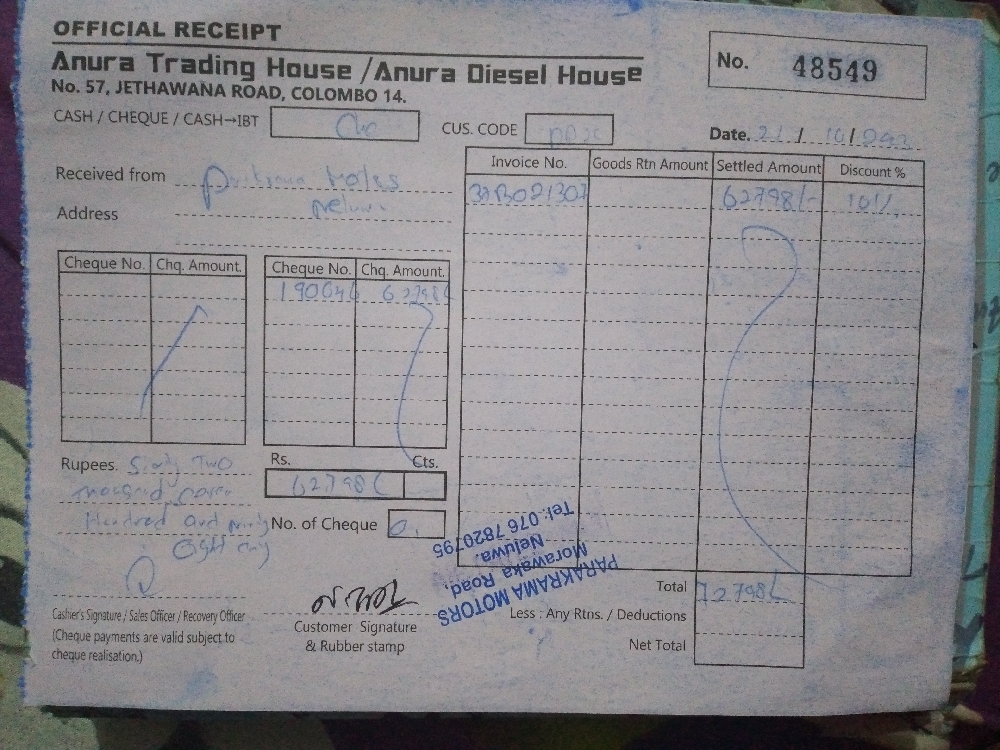 OFFICIAL RECEIPT
Anura Trading House / Anura Diesel House
No. 57, JETHAWANA ROAD, COLOMBO 14.
No. 48549
CASH / CHEQUE / CASH→IBT
CUS. CODE
Date. 21 / 10 /
Received from
Address Neluwa
Invoice No. Goods Rtn Amount Settled Amount Discount %
62798/- 10%
Cheque No. Chq. Amount.
Cheque No. Chq. Amount.
62798/
Rupees. Sixty Two
Hundred and ninty
eight
Rs. Cts.
62798/
No. of Cheque
PARAKRAMA MOTORS
Morawaka Road,
Neluwa.
Tel: 076 7820795
Total
Less : Any Rtns. / Deductions
Net Total
Cashier's Signature / Sales Officer / Recovery Officer
(Cheque payments are valid subject to
cheque realisation.)
Customer Signature
& Rubber stamp